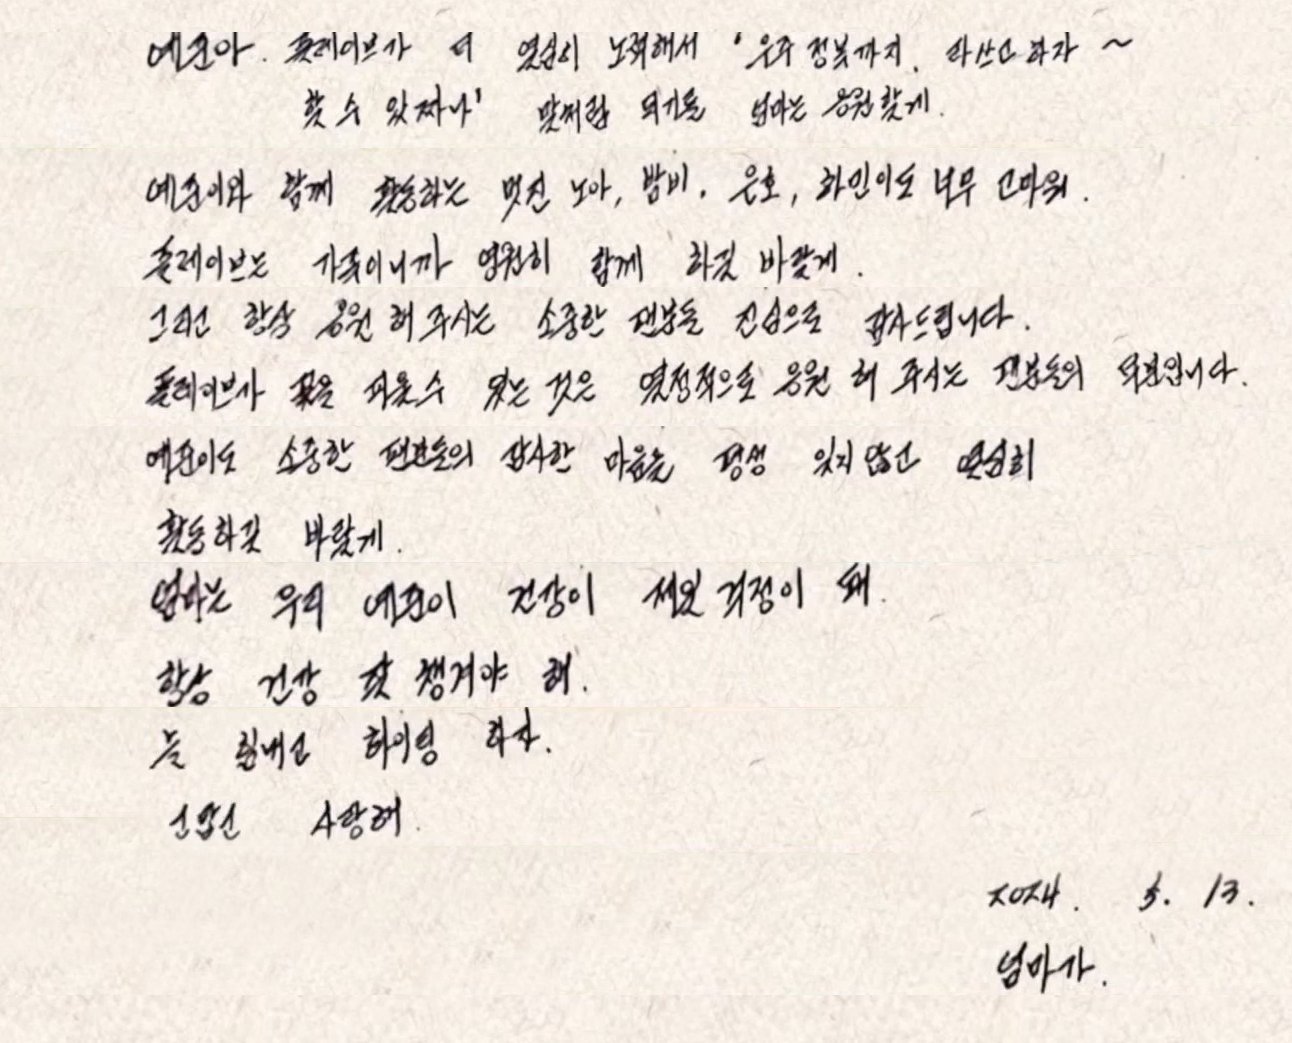 예준아. 플레이브가 더 열심히 노력해서 '우주정복까지. 아자아자 파이팅~
할 수 있짜나' 말처럼 되기를 엄마는 응원할게.
예준이와 함께 활동하는 멋진 노아, 밤비. 은호, 하민이도 너무 고마워.
플레이브는 가족이니까 영원히 함께 하길 바랄게.
그리고 항상 응원 해 주시는 소중한 팬분들 진심으로 감사드립니다.
플레이브가 꽃을 피울 수 있는 것은 열정적으로 응원 해 주시는 팬분들의 덕분입니다.
예준이도 소중한 팬분들의 감사한 마음을 평생 잊지 않고 열심히
활동하길 바랄게.
엄마는 우리 예준이 건강이 제일 걱정이 돼.
항상 건강 잘 챙겨야 해.
늘 힘내고 화이팅 하자.
고맙고 사랑해.
2024. 3. 13.
엄마가.